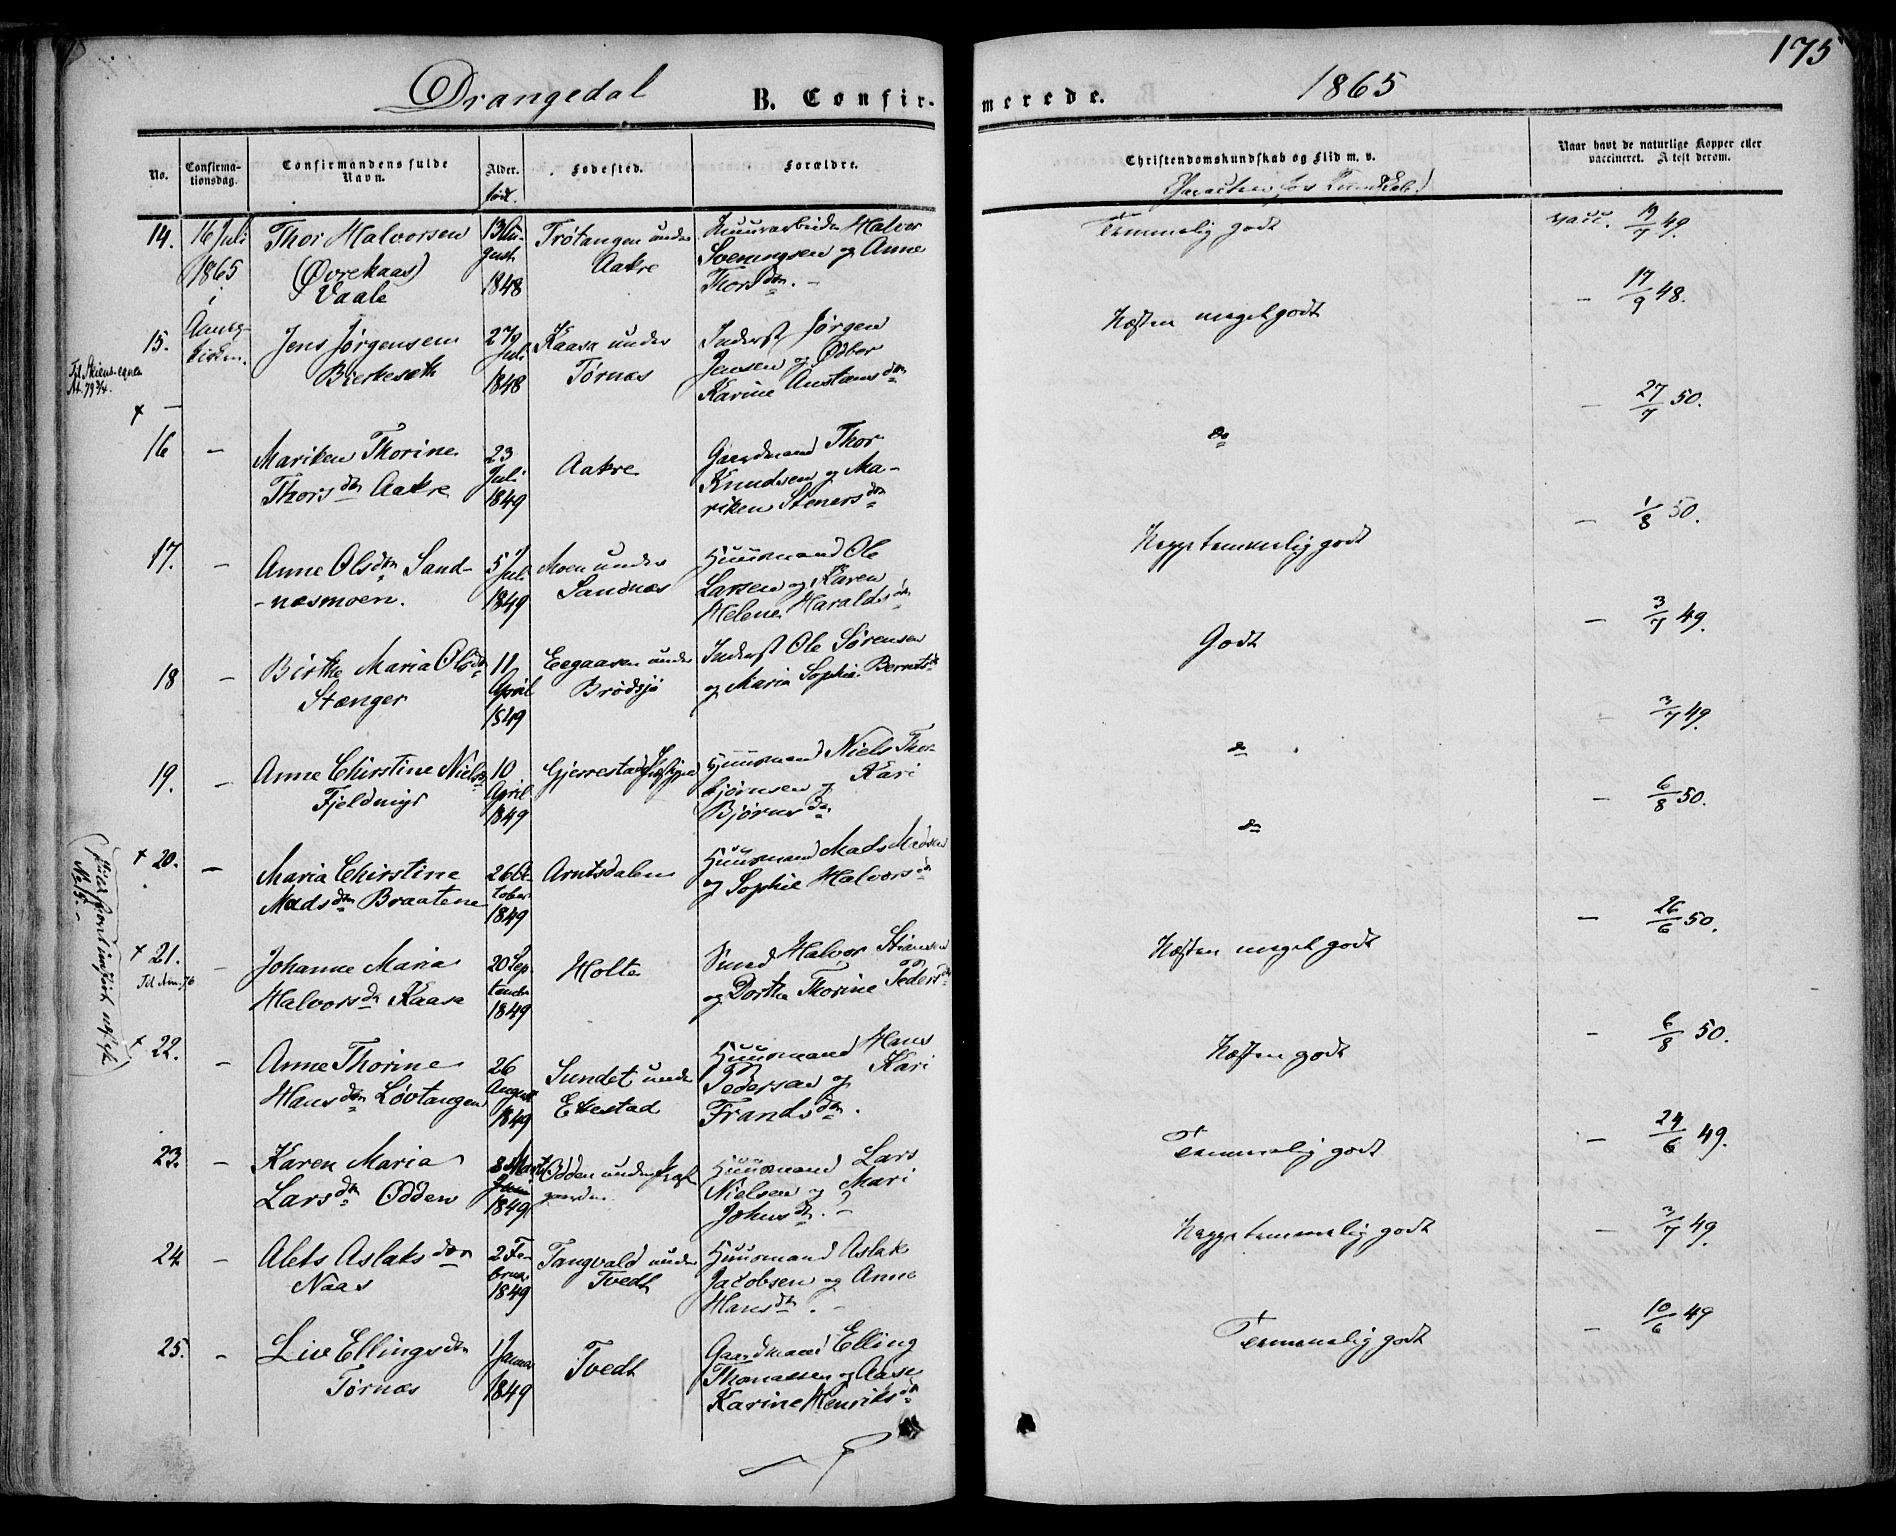 175
Drangedal B. Confir-
merede. 1865
No.
Confirma-
tionsdag.
Confirmandens fulde
Navn.
Alder.
fød.
Fødested.
Forældre.
Christendomskundskab og Flid m. v.
Naar havt de naturlige Kopper eller
vaccineret. Atest derom.
14.
16 Juli
1865
i
Thor Halvorsen
(Øvrekaas)
Vaale
13 Au-
gust
1848
Trøtangen under
Aakre
Halvor
Sveningsen og Anne
Thorsdtr. -
Temmelig godt
Vacc. 19/7 49.
15.
Til Skiens-egnen
Jens Jørgensen
Bierkesæth
27
Juli
1848
Kaasa under
Tørnæs
Inderst Jørgen
Jensen og Ødbor
Karine Austansdtr
Næsten meget godt
- 17/9 48.
16
-
Mariken Thorine
Thorsdtr Aakre
23
Juli
1849
Aakre
Gaardmand Thor
Knudsen og Ma-
riken Stenersdtr
do
- 27/7 50.
17.
-
Anne Olsdtr Sand-
-næsmoen.
5 Juli
1849
Moen under
Sandnæs
Huusmand Ole
Larsen og Karen
Helene Haraldsdtr
Neppe temmelig godt
- 1/8 50.
18
-
Birthe Maria Olsdtr
Stænger
11
April
1849
Eegaasen under
Brødsjø
Inderst Ole Sørensen
og Maria Sophie Berntsdtr
Godt
- 3/7 49.
19.
-
Anne Chirstine Nielsdtr
Fjeldmyr
10
April
1849
Gjerrestad
Huusmand Niels Thor-
bjørnsen og Kari
Bjørnsdtr
do
- 3/7 49.
+ 20.
-
Maria Chirstine
Madsdtr Braatene
26 Ok-
tober
1849
Arntsdalen
Huusmand Mads Madsen
og Sophie Halvorsdtr
do
- 6/8 50.
+ 21.
-
Johanne Maria
Halvorsdtr Kaasa
20 Sep-
tember
1849
Holte
Smed Halvor Stiansen
og Dorthe Thorine Pedersdtr
Næsten meget godt
- 26/6 50.
+ 22.
-
Anne Thorine
Hansdtr Løvtangen
26
August
1849
Sundet under
Ettestad
Huusmand Hans
Pedersen og Kari
Frandsdtr.
Næsten godt
- 6/8 50.
23.
-
Karen Maria
Larsdtr Odden
8 Mart
1849
Odden under
Huusmand Lars
Nielsen og Mari
Johnsdtr. -
Temmelig godt
- 24/6 49.
24
-
Alets Aslaksdtr
Naas
2 Fe-
bruar
1849
Tangvald under
Tvedt
Huusmand Aslak
Jacobsen og Anne
Hansdtr. -
Neppe temmelig godt
- 3/7 49.
25.
-
Live Ellingsdtr
Tørnæs
1 Januar
1849
Tvedt
Gaardmand Elling
Thomassen og Aase
Karine Henriksdtr
Temmelig godt
- 10/6 49